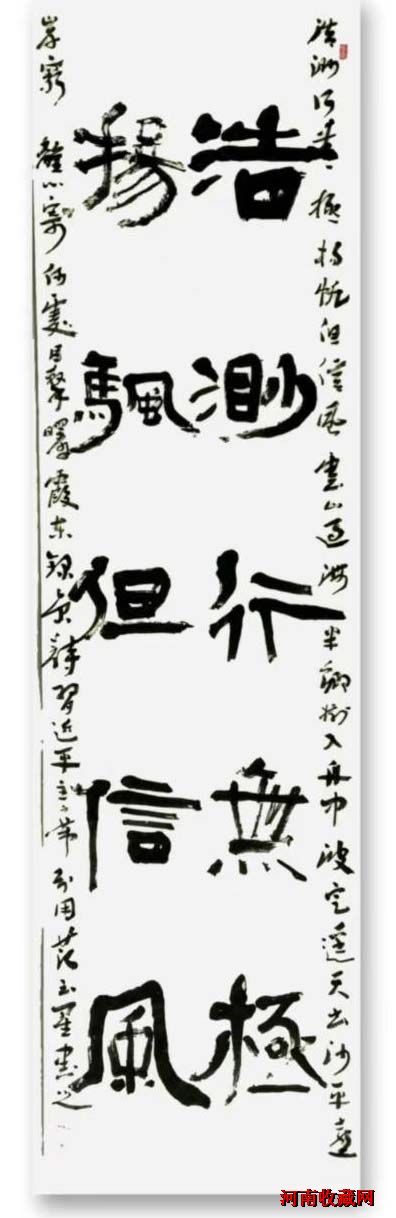 浩渺行無極
揚颿但信風
浩渺行無極揚帆但信風雲山過海半鄉樹入舟中波定遙天出沙平遠
岸窮離心寄何處目擊曙霞东詩習近平主席引用范玉星書之
河南收藏网